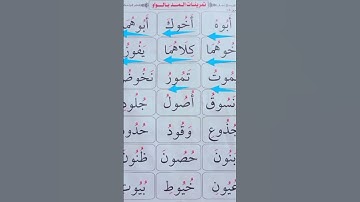 تمرينات المد بالواو
أَبُوهُ أَخُوكَ أَبُوهُمَا
خُوهُمَا كِلَاهُمَا يَفُوزُ
مُوتُ تَمُورُ نَخُوضُ
نَسُوقُ أُصُولُ جُلُودُ
جُذُوعِ وَقُودُ حُدُو
بَنُونَ حُصُونَ ظُنُونَ
عُيُونِ خُيُوطِ بُيُوتِ